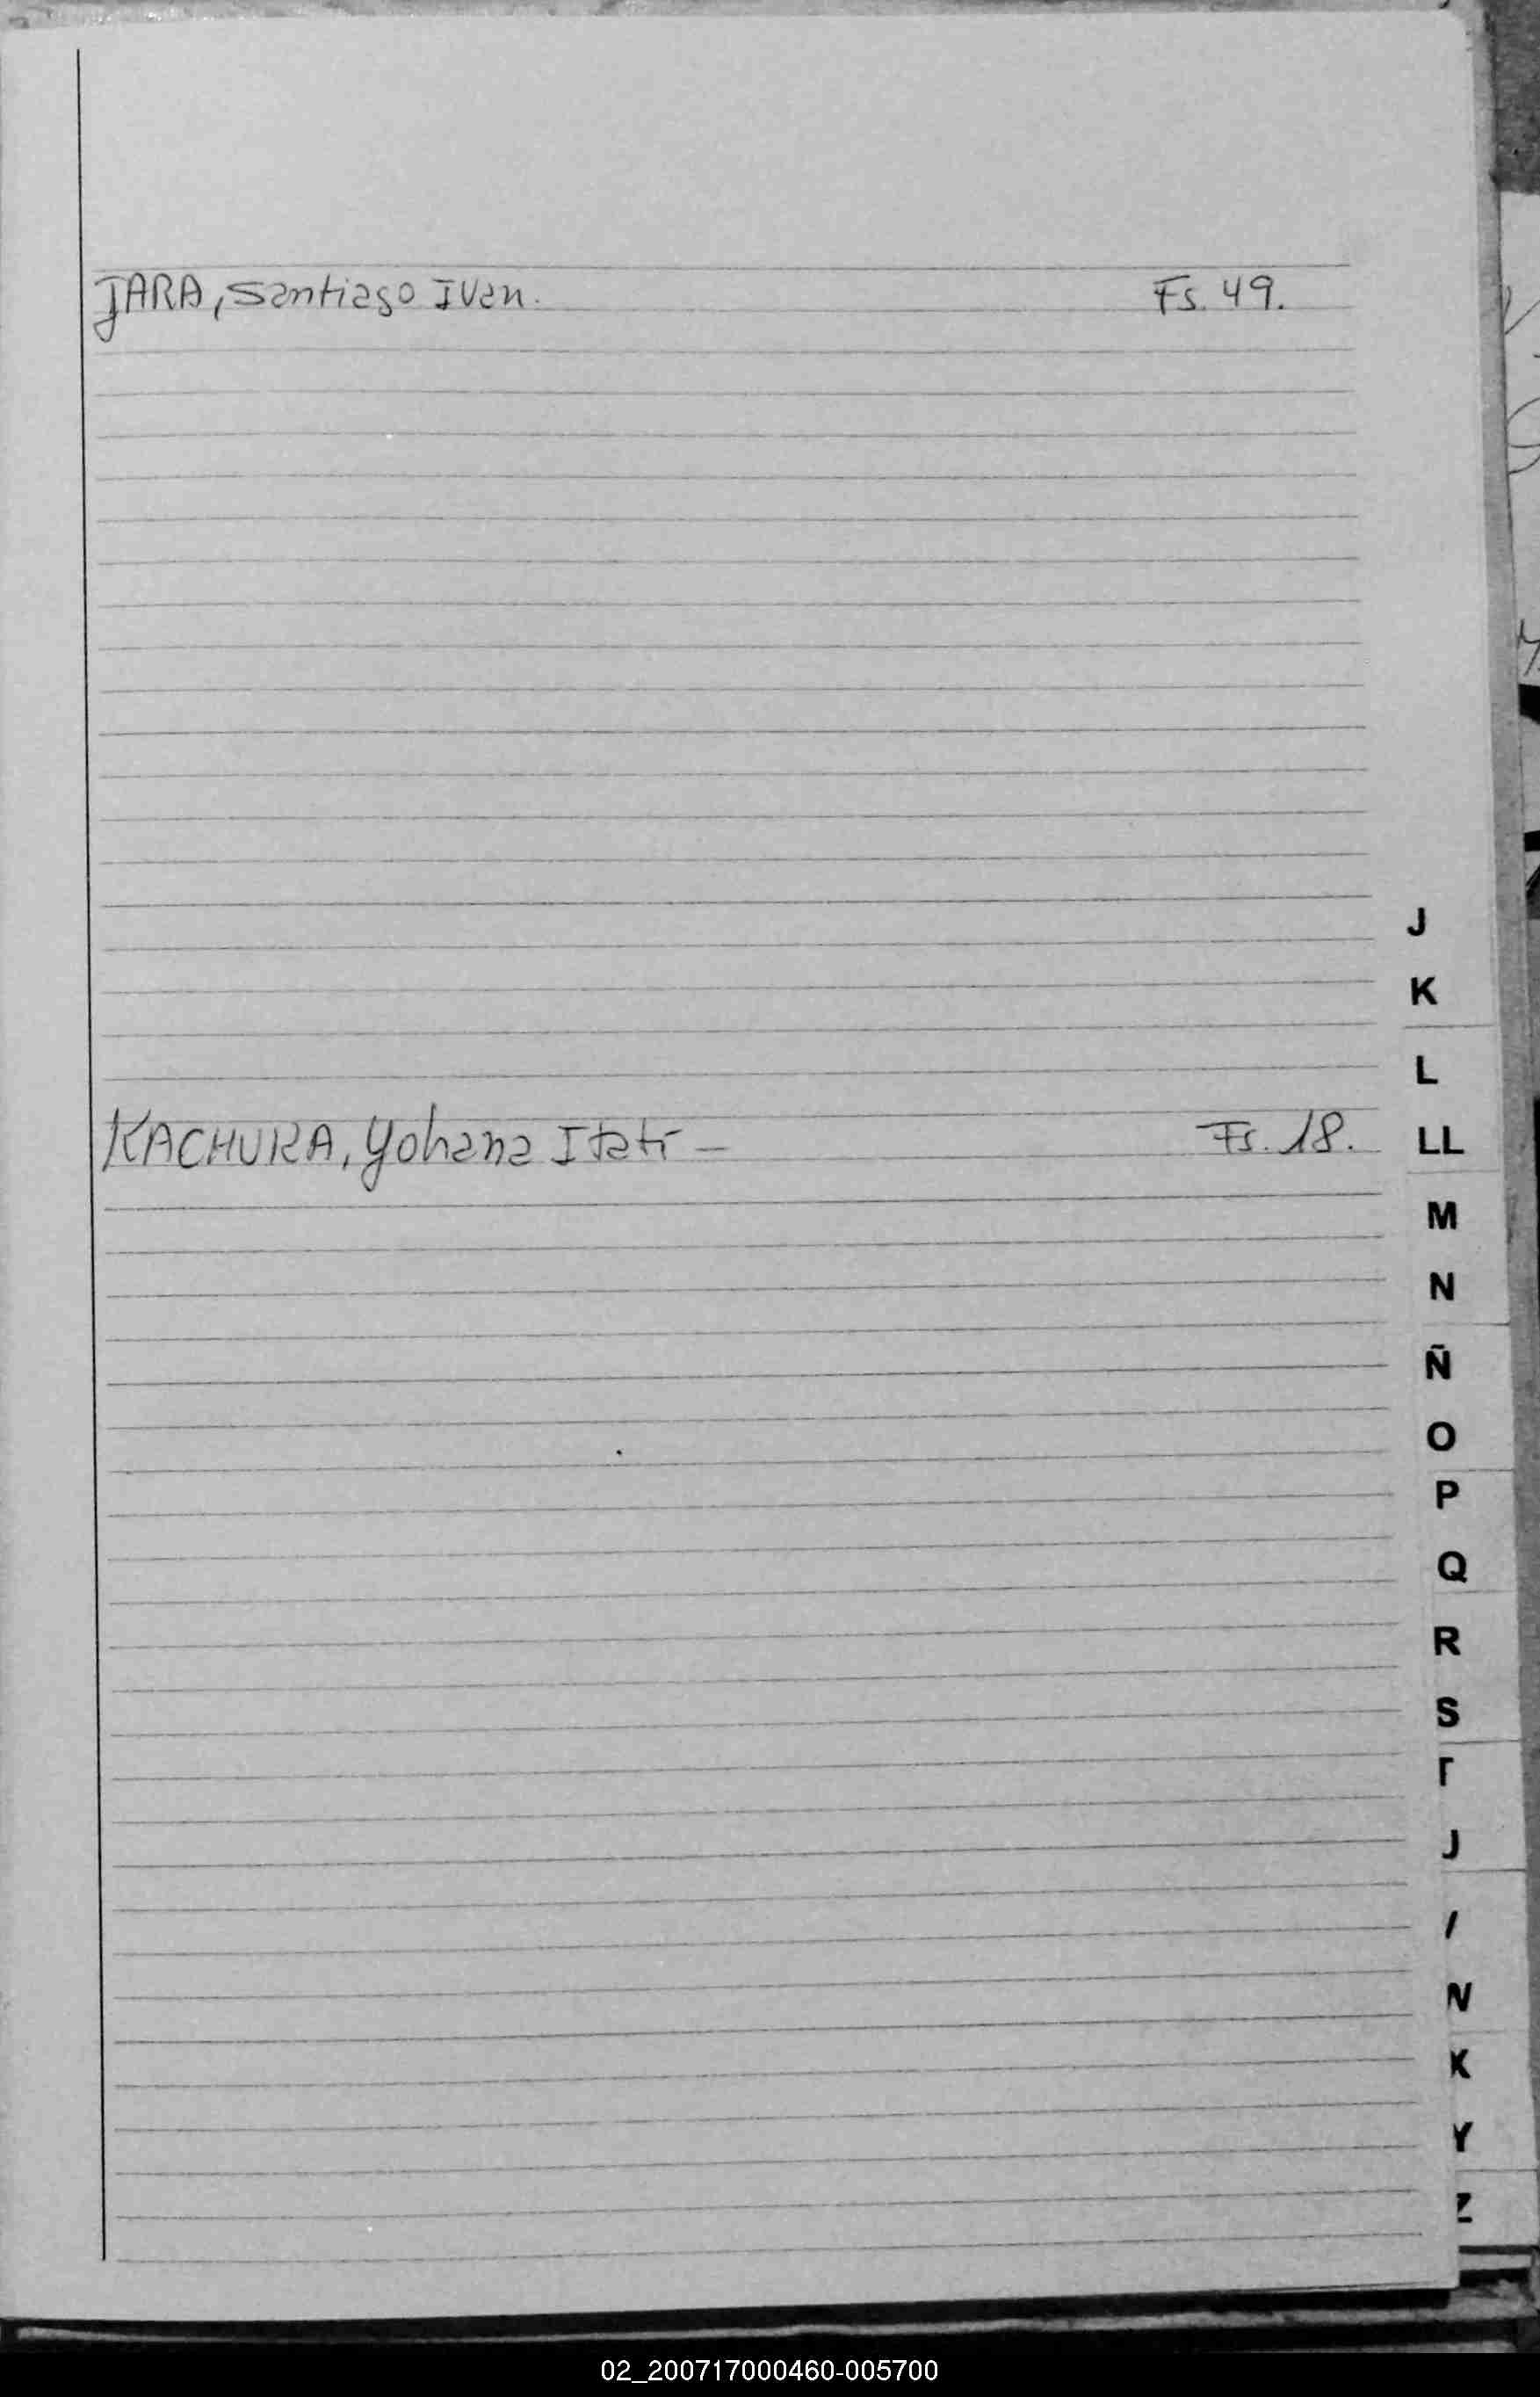 JARA, Santiago Ivan. Fs. 49.
J
K
L
KACHURA, Yohana Itatí - Fs. 18.
LL
M
N
Ñ
O
P
Q
R
S
T
J
N
K
Y
Z
02_200717000460-005700